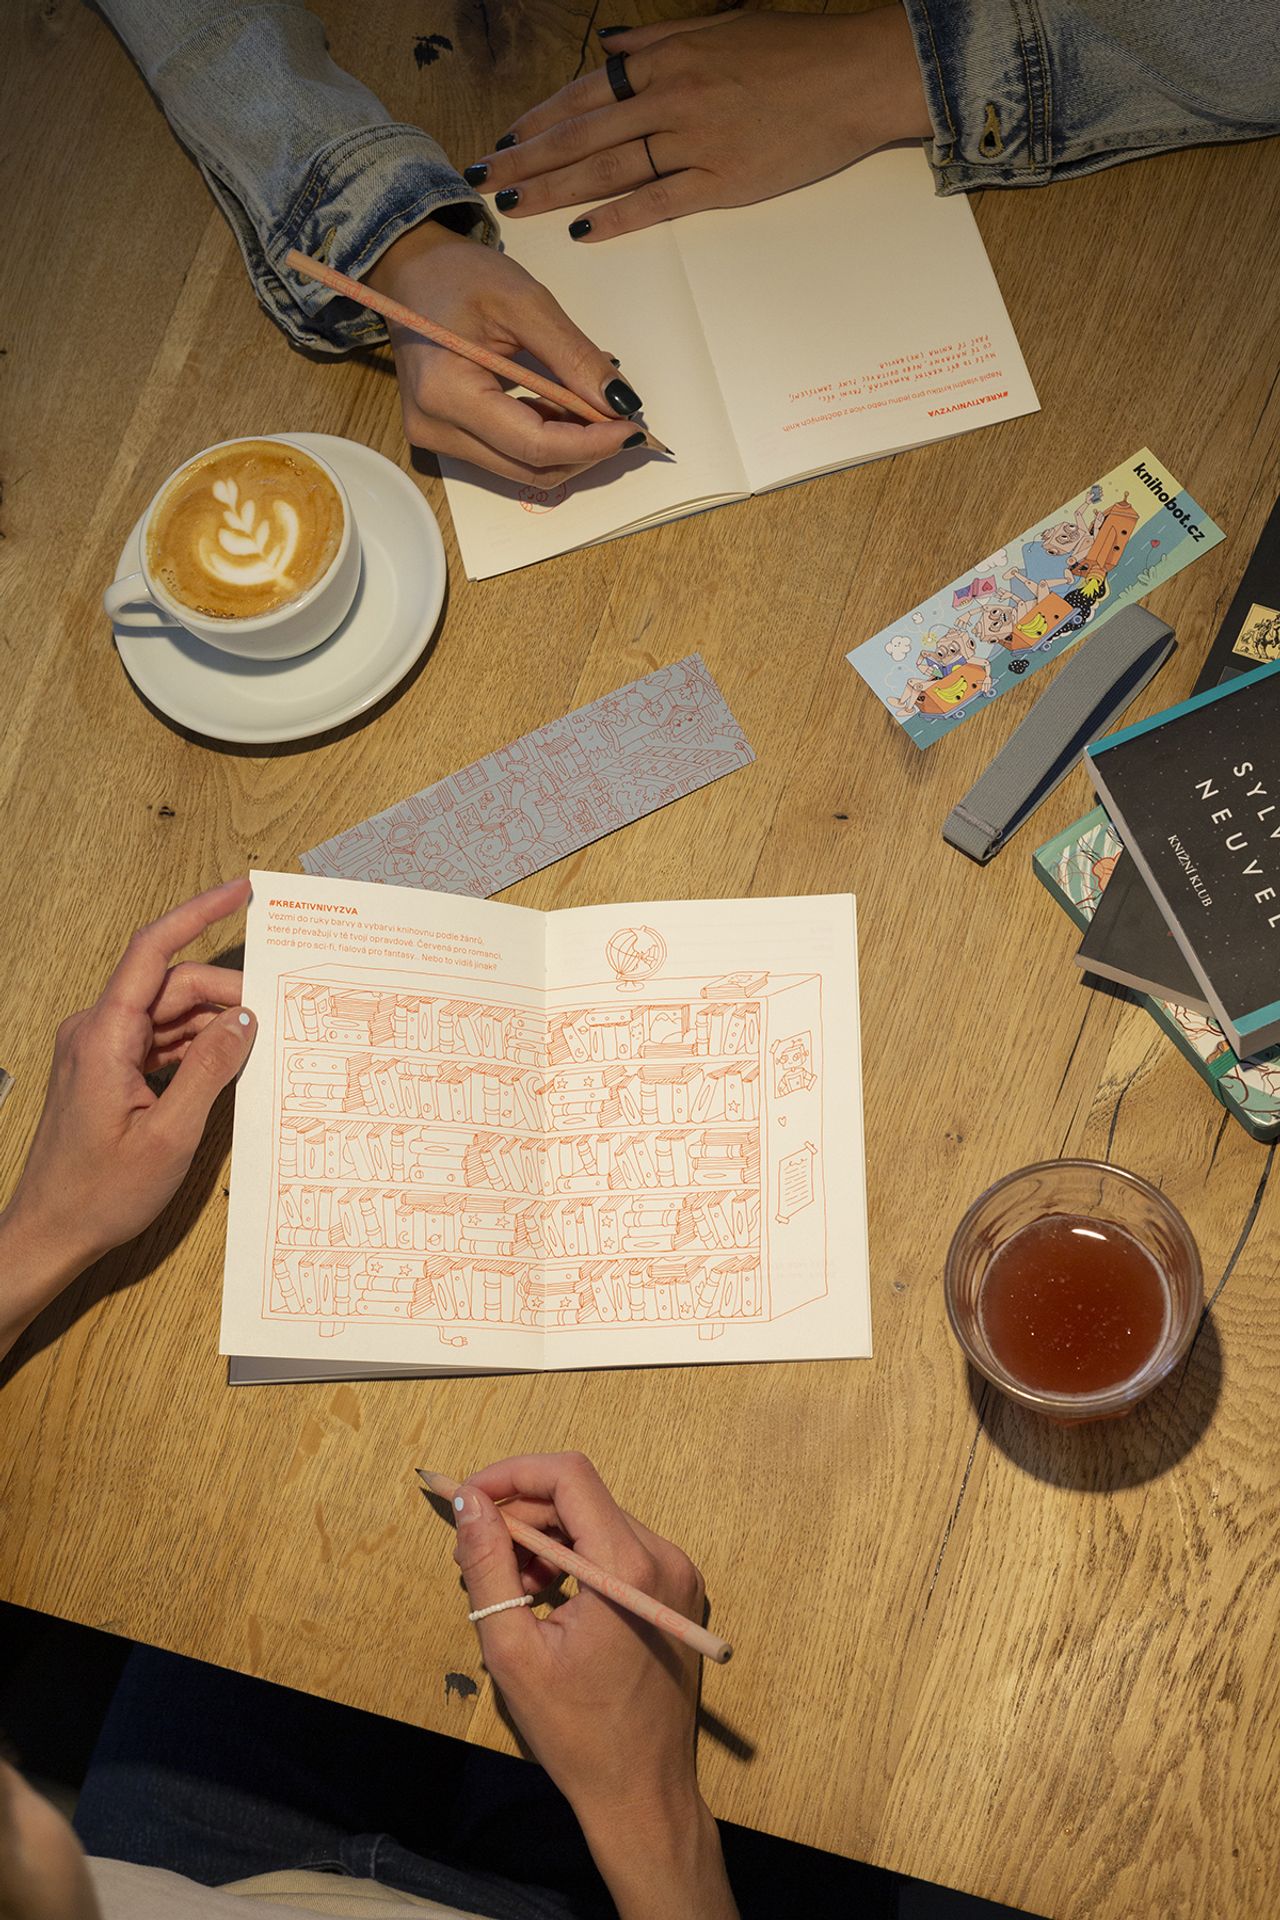 #KREATIVNIVYZVA
Napiš vlastní kritiku pro jednu nebo více z dočtených knih.
MŮŽE TO BÝT KRÁTKÝ KOMENTÁŘ, PRVNÍ VĚC,
CO TĚ NAPADNE, NEBO ODSTAVEC PLNÝ ZAMYŠLENÍ,
PROČ TĚ KNIHA (NE)BAVILA.
knihobot.cz
SYLV
NEUVEL
KNIŽNÍ KLUB
#KREATIVNIVYZVA
Vezmi do ruky barvy a vybarvi knihovnu podle žánrů,
které převažují v té tvojí opravdové. Červená pro romanci,
modrá pro sci-fi, fialová pro fantasy... Nebo to vidíš jinak?